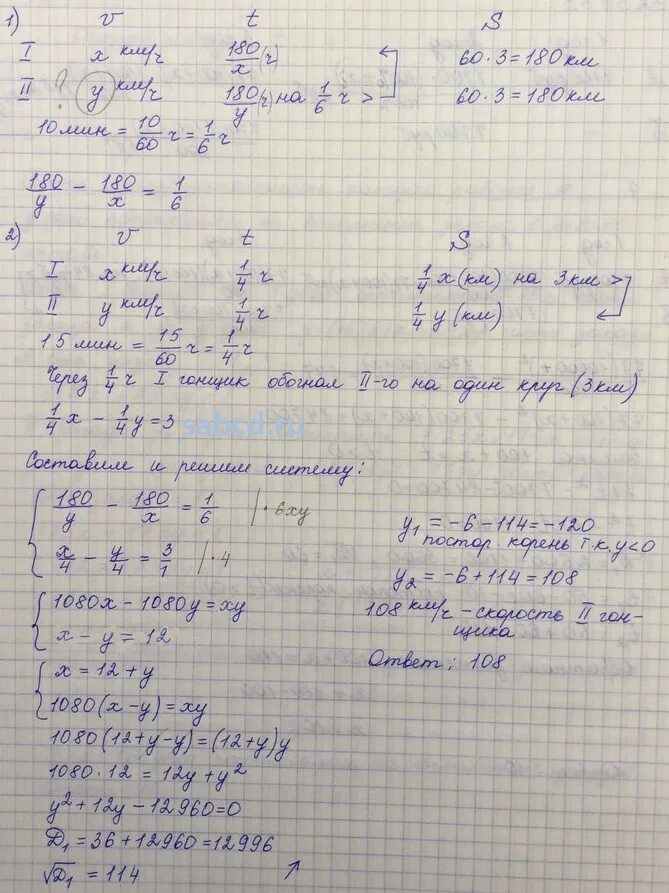 1) v t S
I x км/ч 180/x (ч) 60·3=180км
II ? y км/ч 180/y (ч) на 1/6 ч > 60·3=180км
10 мин = 10/60 ч = 1/6 ч
180/y − 180/x = 1/6
2) v t S
I x км/ч 1/4 ч 1/4 x (км) на 3 км >
II y км/ч 1/4 ч 1/4 y (км)
15 мин = 15/60 ч = 1/4 ч
Через 1/4 ч I гонщик обогнал II-го на один круг (3 км)
1/4 x − 1/4 y = 3
sabcd.ru
Составим и решим систему:
180/y − 180/x = 1/6 |·6xy
x/4 − y/4 = 3/1 |·4
1080x − 1080y = xy
x − y = 12
x = 12 + y
1080(x−y) = xy
1080(12+y−y) = (12+y)y
1080·12 = 12y + y²
y² + 12y − 12960 = 0
D₁ = 36 + 12960 = 12996
√D₁ = 114 ↗
y₁ = −6 − 114 = −120
постор. корень т.к. y<0
y₂ = −6 + 114 = 108
108 км/ч – скорость II гон-
щика
Ответ: 108